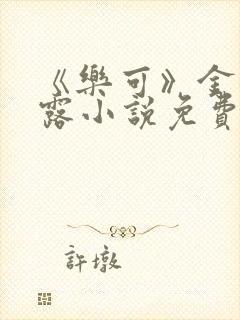 《樂可》金
露小說免費
許墩